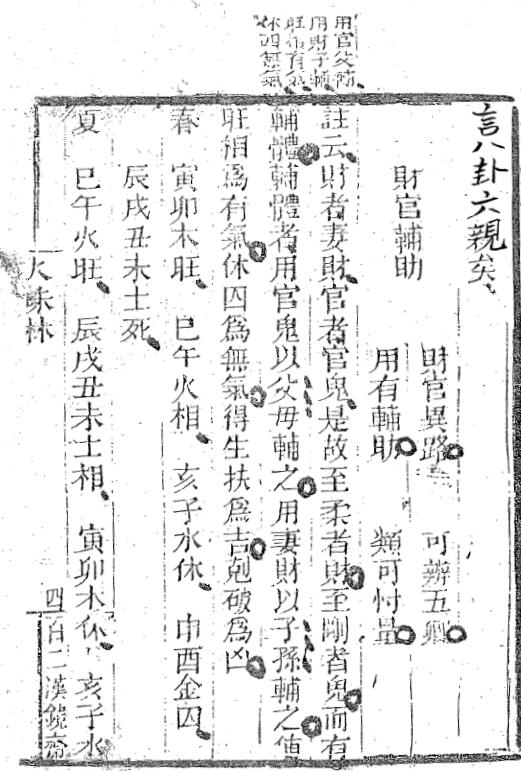 用官父補
用財子輔
旺相有氣
休囚無氣
言八卦六親矣
財官輔助
財官異路 可辨五鄉
用有輔助 類可忖量
註云財者妻財官者官鬼是故至柔者財至剛者鬼而有
輔體輔體者用官鬼以父母輔之用妻財以子孫輔之值
旺相爲有氣休囚爲無氣得生扶爲吉剋破爲凶
春 寅卯木旺 巳午火相 亥子水休 申酉金囚
辰戌丑未土死
夏 巳午火旺 辰戌丑未土相 寅卯木休 亥子水
火珠林
四百二漢鏡齋